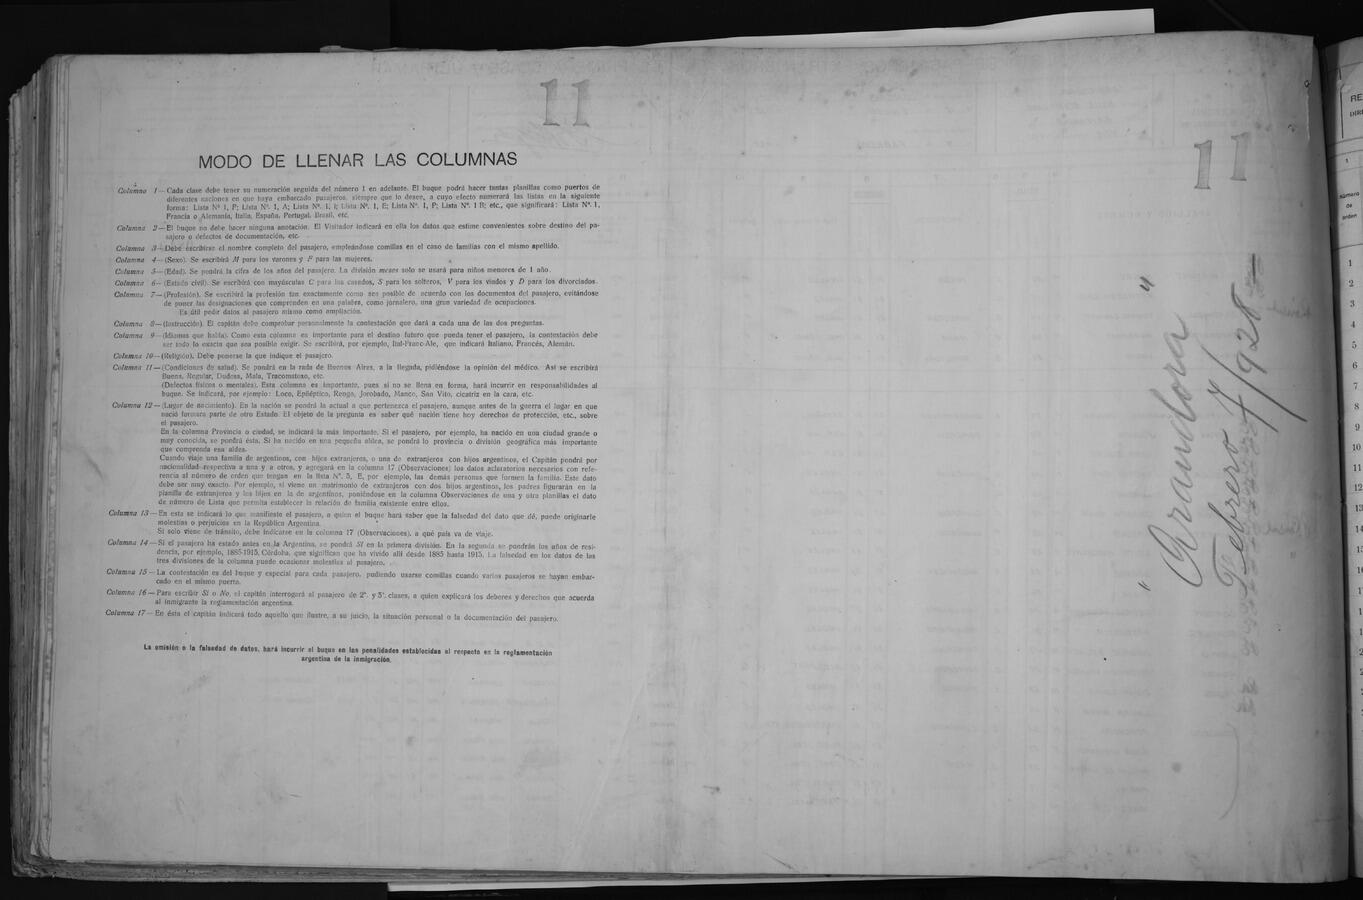 11
MODO DE LLENAR LAS COLUMNAS
Columna 1—Cada clase debe tener su numeración seguida del número 1 en adelante. El buque podrá hacer tantas planillas como puertos de
diferentes naciones en que haya embarcado pasajeros, siempre que lo desee, a cuyo efecto numerará las listas en la siguiente
forma: Lista Nº 1, P; Lista Nº. 1, A; Lista Nº. 1, I; Lista Nº. 1, E; Lista Nº. 1, P; Lista Nº. 1 B; etc., que significará: Lista Nº. 1,
Francia o Alemania, Italia, España, Portugal, Brasil, etc.
Columna 2—El buque no debe hacer ninguna anotación. El Visitador indicará en ella los datos que estime convenientes sobre destino del pa-
sajero o defectos de documentación, etc.
Columna 3—Debe escribirse el nombre completo del pasajero, empleándose comillas en el caso de familias con el mismo apellido.
Columna 4—(Sexo). Se escribirá M para los varones y F para las mujeres.
Columna 5—(Edad). Se pondrá la cifra de los años del pasajero. La división meses solo se usará para niños menores de 1 año.
Columna 6—(Estado civil). Se escribirá con mayúsculas C para los casados, S para los solteros, V para los viudos y D para los divorciados.
Columna 7—(Profesión). Se escribirá la profesión tan exactamente como sea posible de acuerdo con los documentos del pasajero, evitándose
de poner las designaciones que comprenden en una palabra, como jornalero, una gran variedad de ocupaciones.
Es útil pedir datos al pasajero mismo como ampliación.
Columna 8—(Instrucción). El capitán debe comprobar personalmente la contestación que dará a cada una de las dos preguntas.
Columna 9—(Idiomas que habla). Como esta columna es importante para el destino futuro que pueda tener el pasajero, la contestación debe
ser todo lo exacta que sea posible exigir. Se escribirá, por ejemplo, Ital-Franc-Ale, que indicará Italiano, Francés, Alemán.
Columna 10—(Religión). Debe ponerse la que indique el pasajero.
Columna 11—(Condiciones de salud). Se pondrá en la rada de Buenos Aires, a la llegada, pidiéndose la opinión del médico. Así se escribirá
Buena, Regular, Dudosa, Mala, Tracomatoso, etc.
(Defectos físicos o mentales). Esta columna es importante, pues si no se llena en forma, hará incurrir en responsabilidades al
buque. Se indicará, por ejemplo: Loco, Epiléptico, Rengo, Jorobado, Manco, San Vito, cicatriz en la cara, etc.
Columna 12—(Lugar de nacimiento). En la nación se pondrá la actual a que pertenezca el pasajero, aunque antes de la guerra el lugar en que
nació formara parte de otro Estado. El objeto de la pregunta es saber qué nación tiene hoy derechos de protección, etc., sobre
el pasajero.
En la columna Provincia o ciudad, se indicará la más importante. Si el pasajero, por ejemplo, ha nacido en una ciudad grande o
muy conocida, se pondrá ésta. Si ha nacido en una pequeña aldea, se pondrá la provincia o división geográfica más importante
que comprenda esa aldea.
Cuando viaje una familia de argentinos, con hijos extranjeros, o una de extranjeros con hijos argentinos, el Capitán pondrá por
nacionalidad respectiva a una y a otros, y agregará en la columna 17 (Observaciones) los datos aclaratorios necesarios con refe-
rencia al número de orden que tengan en la lista Nº. 5, E, por ejemplo, las demás personas que formen la familia. Este dato
debe ser muy exacto. Por ejemplo, si viene un matrimonio de extranjeros con dos hijos argentinos, los padres figurarán en la
planilla de extranjeros y los hijos en la de argentinos, poniéndose en la columna Observaciones de una y otra planillas el dato
de número de Lista que permita establecer la relación de familia existente entre ellos.
Columna 13—En esta se indicará lo que manifieste el pasajero, a quien el buque hará saber que la falsedad del dato que dé, puede originarle
molestias o perjuicios en la República Argentina.
Si solo viene de tránsito, debe indicarse en la columna 17 (Observaciones), a qué país va de viaje.
Columna 14—Si el pasajero ha estado antes en la Argentina, se pondrá SI en la primera división. En la segunda se pondrán los años de resi-
dencia, por ejemplo, 1885-1915, Córdoba, que significan que ha vivido allí desde 1885 hasta 1915. La falsedad en los datos de las
tres divisiones de la columna puede ocasionar molestias al pasajero.
Columna 15—La contestación es del buque y especial para cada pasajero, pudiendo usarse comillas cuando varios pasajeros se hayan embar-
cado en el mismo puerto.
Columna 16—Para escribir Si o No, el capitán interrogará al pasajero de 2ª. y 3ª. clases, a quien explicará los deberes y derechos que acuerda
al inmigrante la reglamentación argentina.
Columna 17—En ésta el capitán indicará todo aquello que ilustre, a su juicio, la situación personal o la documentación del pasajero.
La omisión o la falsedad de datos, hará incurrir el buque en las penalidades establecidas al respecto en la reglamentación
argentina de la inmigración.
11
"Arandora"
Febrero 7/928
RE
DIRE
1
Número
de
orden
1
2
3
4
5
6
7
8
9
10
11
12
13
14